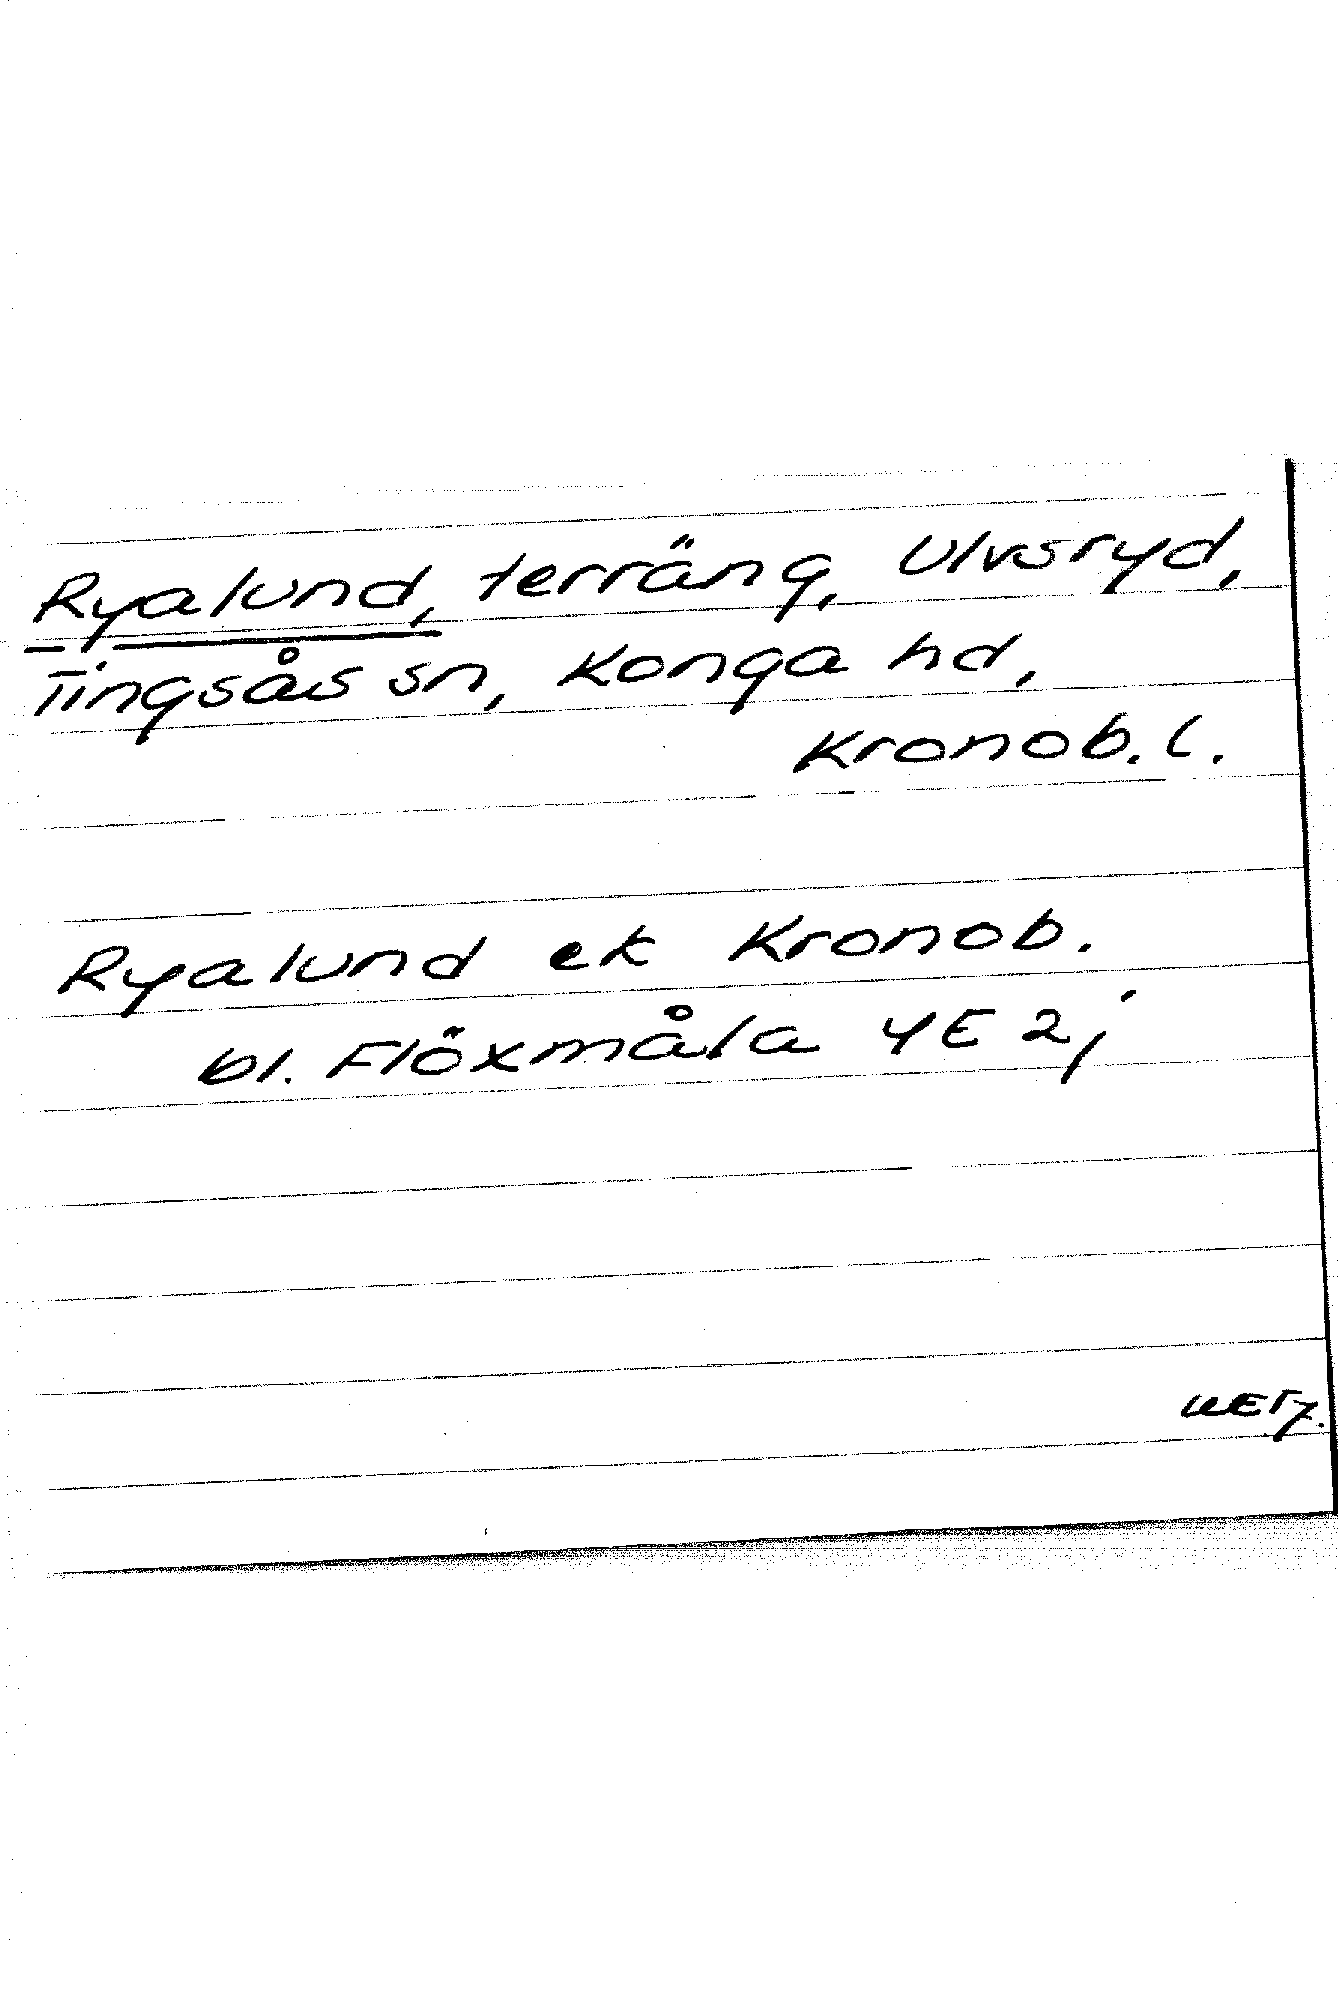 Ryalund, terräng, Ulvsryd,
Tingsås sn, Konga hd,
Kronob. l.
Ryalund ek Kronob.
bl. Flöxmåla 4E 2j